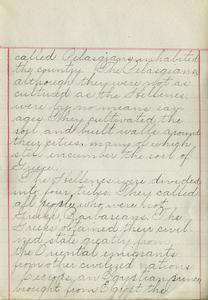 called Pelasgians inhabited
the country. The Pelasgians
although they were not as
cultured as the Hellenes
were by no means sav
ages. They cultivated the
soil and built walls around
their cities, many of which
still encumber the soil of
Greece.
The Hellenes were divided
into four tribes. They called
all people who were not
Greeks, Barbareans. The
Greeks obtained their civil
ized state greatly from
the Oriental emigrants
from other civilized nations
Cecrops, an Egyptian prince,
brought from Egypt the